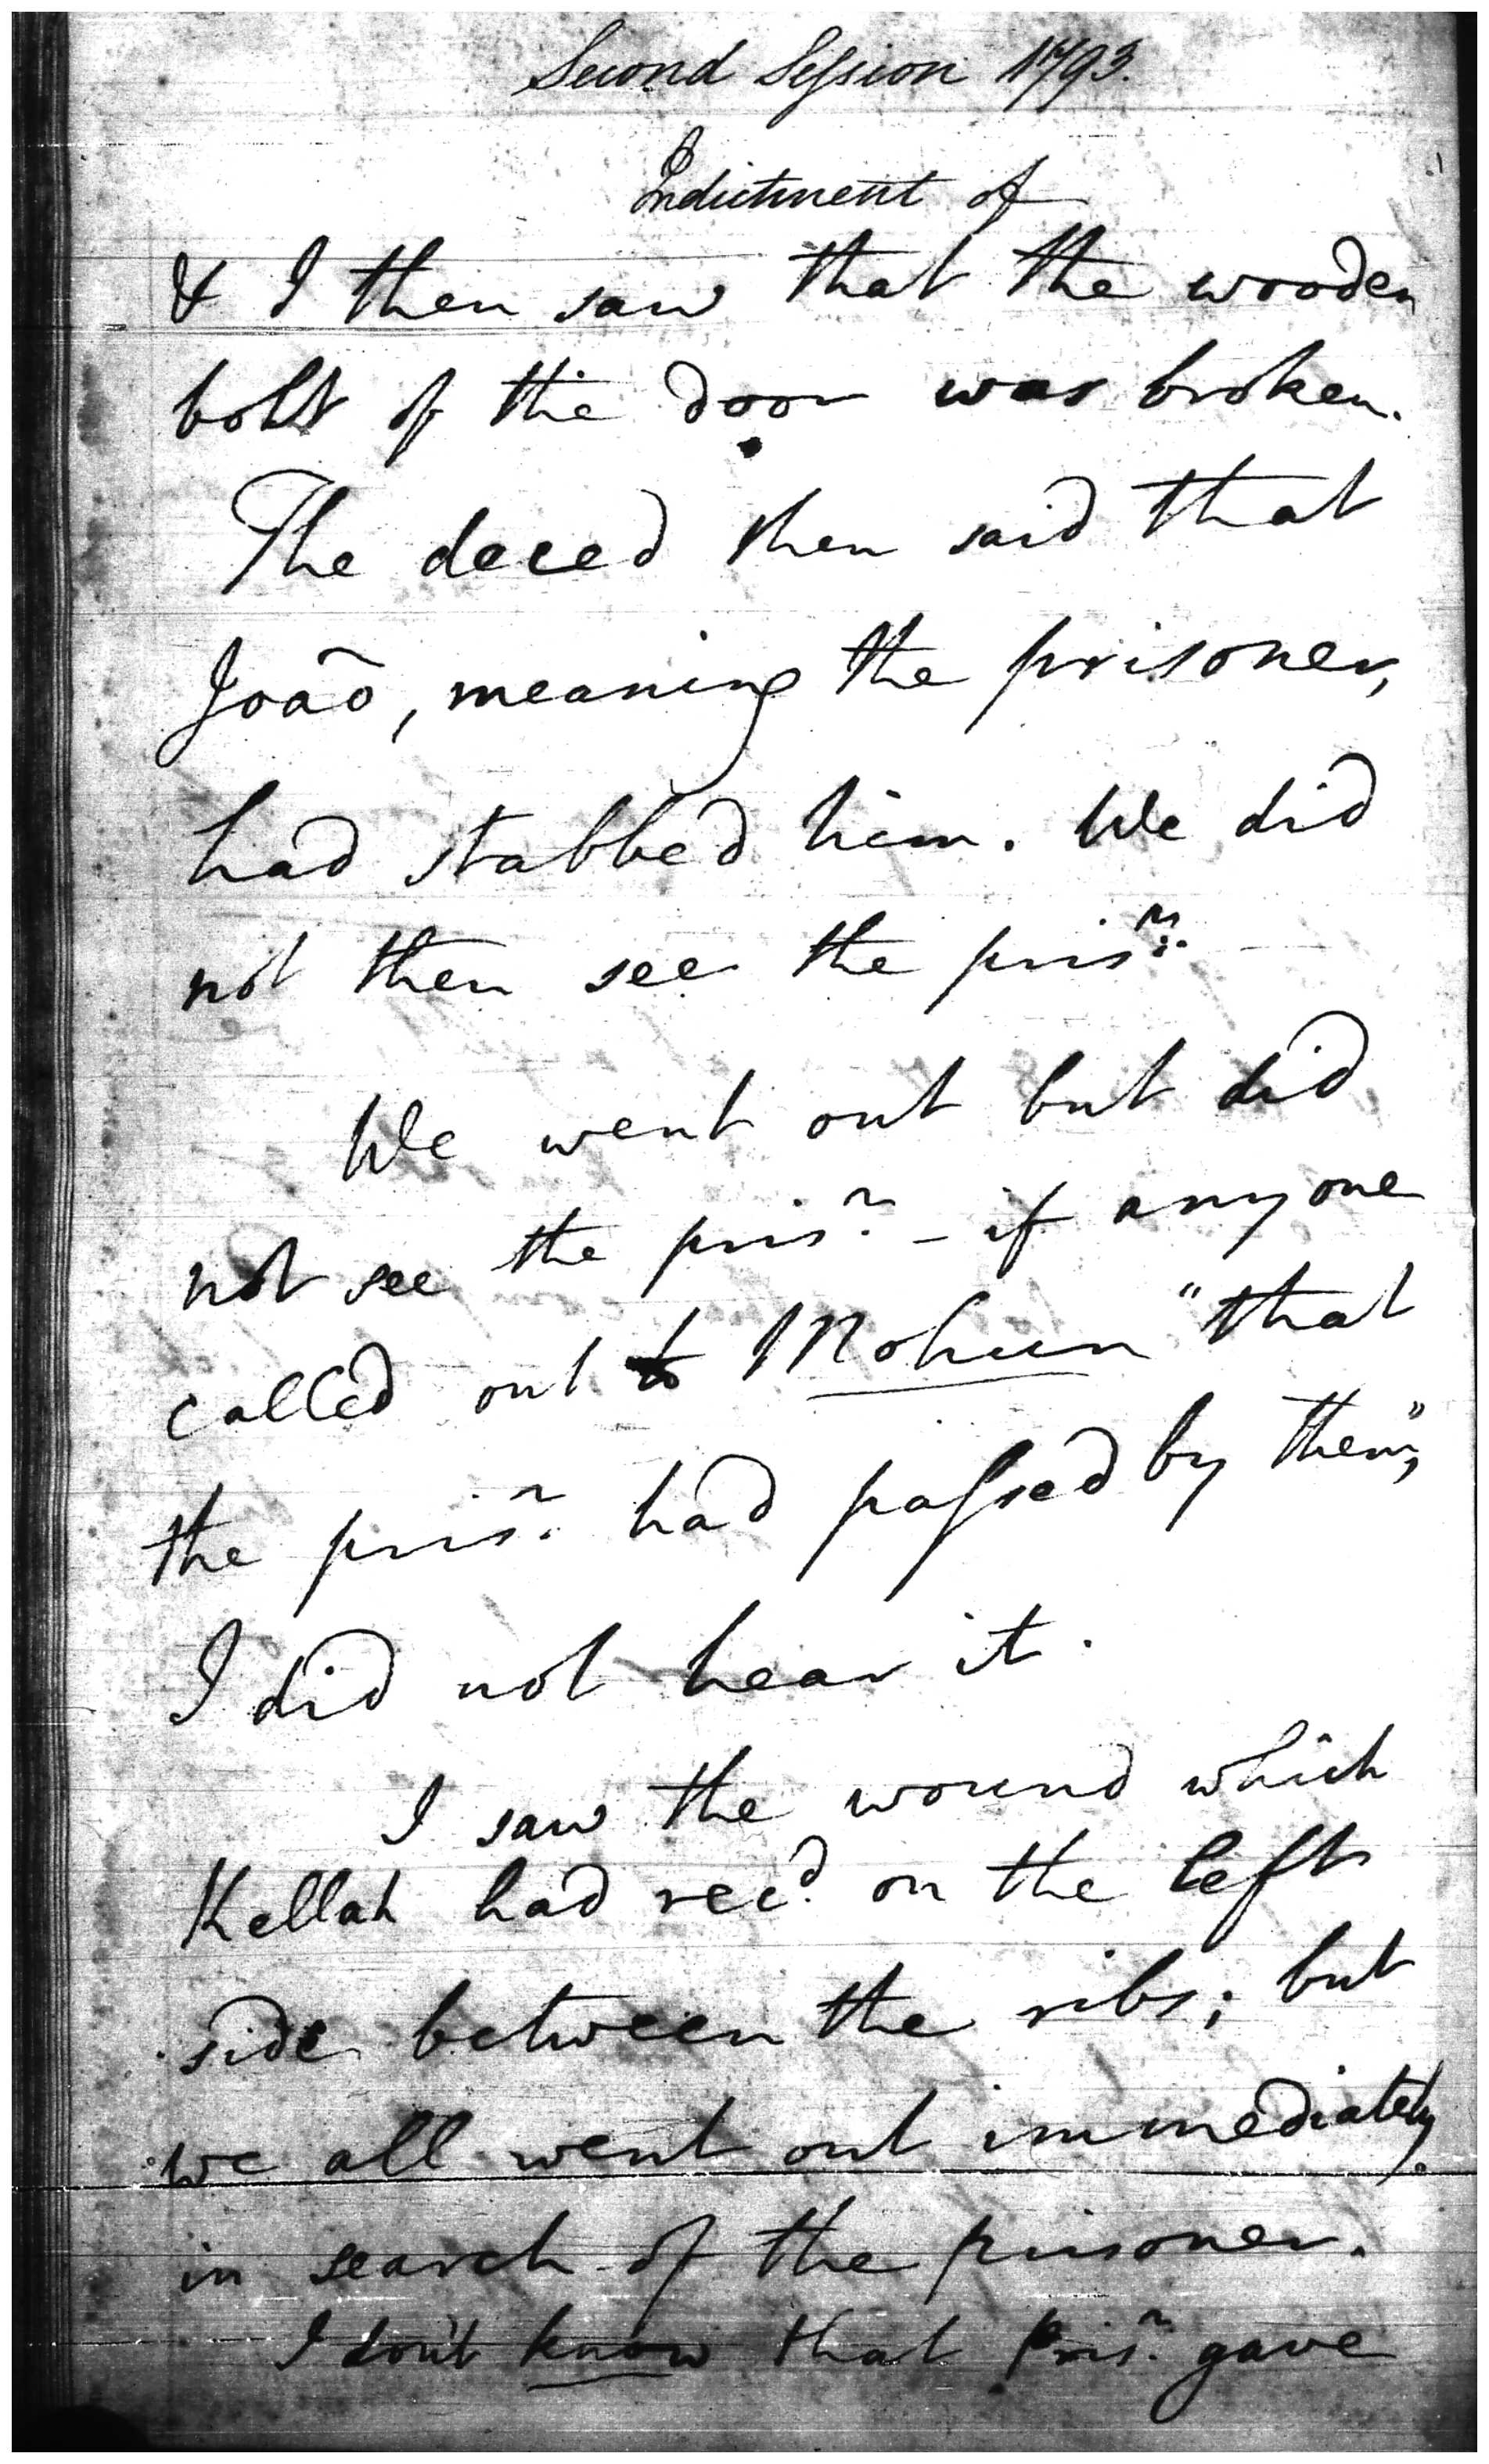 Second Session 1793.
Indictment of
& I then saw that the wooden
bolt of the door was broken.
The deced then said that
Joaõ, meaning the prisoner,
had stabbed him. We did
not then see the prisr.
We went out but did
not see the prisr. - if anyone
called out to Mohun "that
the prisr. had passed by them",
I did not hear it.
I saw the wound which
Kellah had recd. on the left
side between the ribs; but
we all went out immediately
in search of the prisoner.
I don't know that Prisr. gave